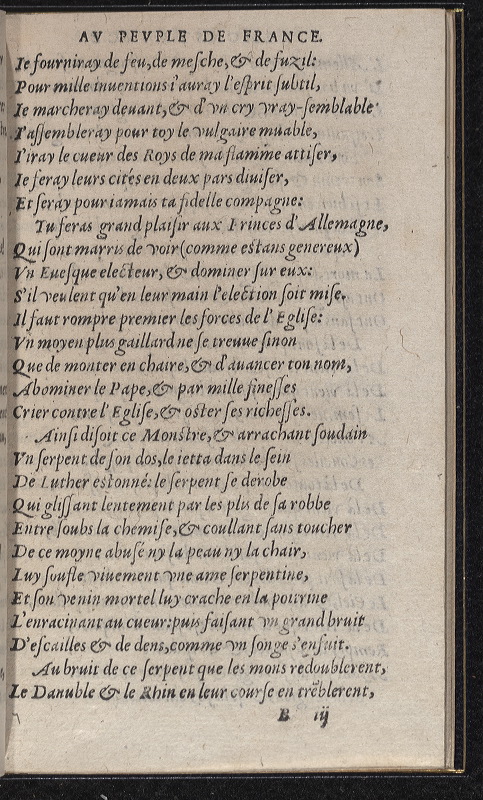 AV PEVPLE DE FRANCE.
Ie fourniray de feu, de mesche, & de fuzil:
Pour mille inuentions i'auray l'esprit subtil,
Ie marcheray deuant, & d'vn cry vray-semblable
I'assembleray pour toy le vulgaire muable,
I'iray le cueur des Roys de ma flamme attiser,
Ie feray leurs cités en deux pars diuiser,
Et seray pour iamais ta fidelle compagne:
Tu feras grand plaisir aux Princes d'Allemagne,
Qui sont marris de voir (comme estans genereux)
Vn Euesque electeur, & dominer sur eux:
S'il veulent qu'en leur main l'election soit mise,
Il faut rompre premier les forces de l'Eglise:
Vn moyen plus gaillard ne se treuue sinon
Que de monter en chaire, & d'auancer ton nom,
Abominer le Pape, & par mille finesses
Crier contre l'Eglise, & oster ses richesses.
Ainsi disoit ce Monstre, & arrachant soudain
Vn serpent de son dos, le ietta dans le sein
De Luther estonné: le serpent se derobe
Qui glissant lentement par les plis de sa robbe
Entre soubs la chemise, & coullant sans toucher
De ce moyne abusé ny la peau ny la chair,
Luy soufle viuement vne ame serpentine,
Et son venin mortel luy crache en la poitrine
L'enracinant au cueur: puis faisant vn grand bruit
D'escailles & de dens, comme vn songe s'enfuit.
Au bruit de ce serpent que les mons redoublerent,
Le Danube & le Rhin en leur course en trẽblerent,
B iij